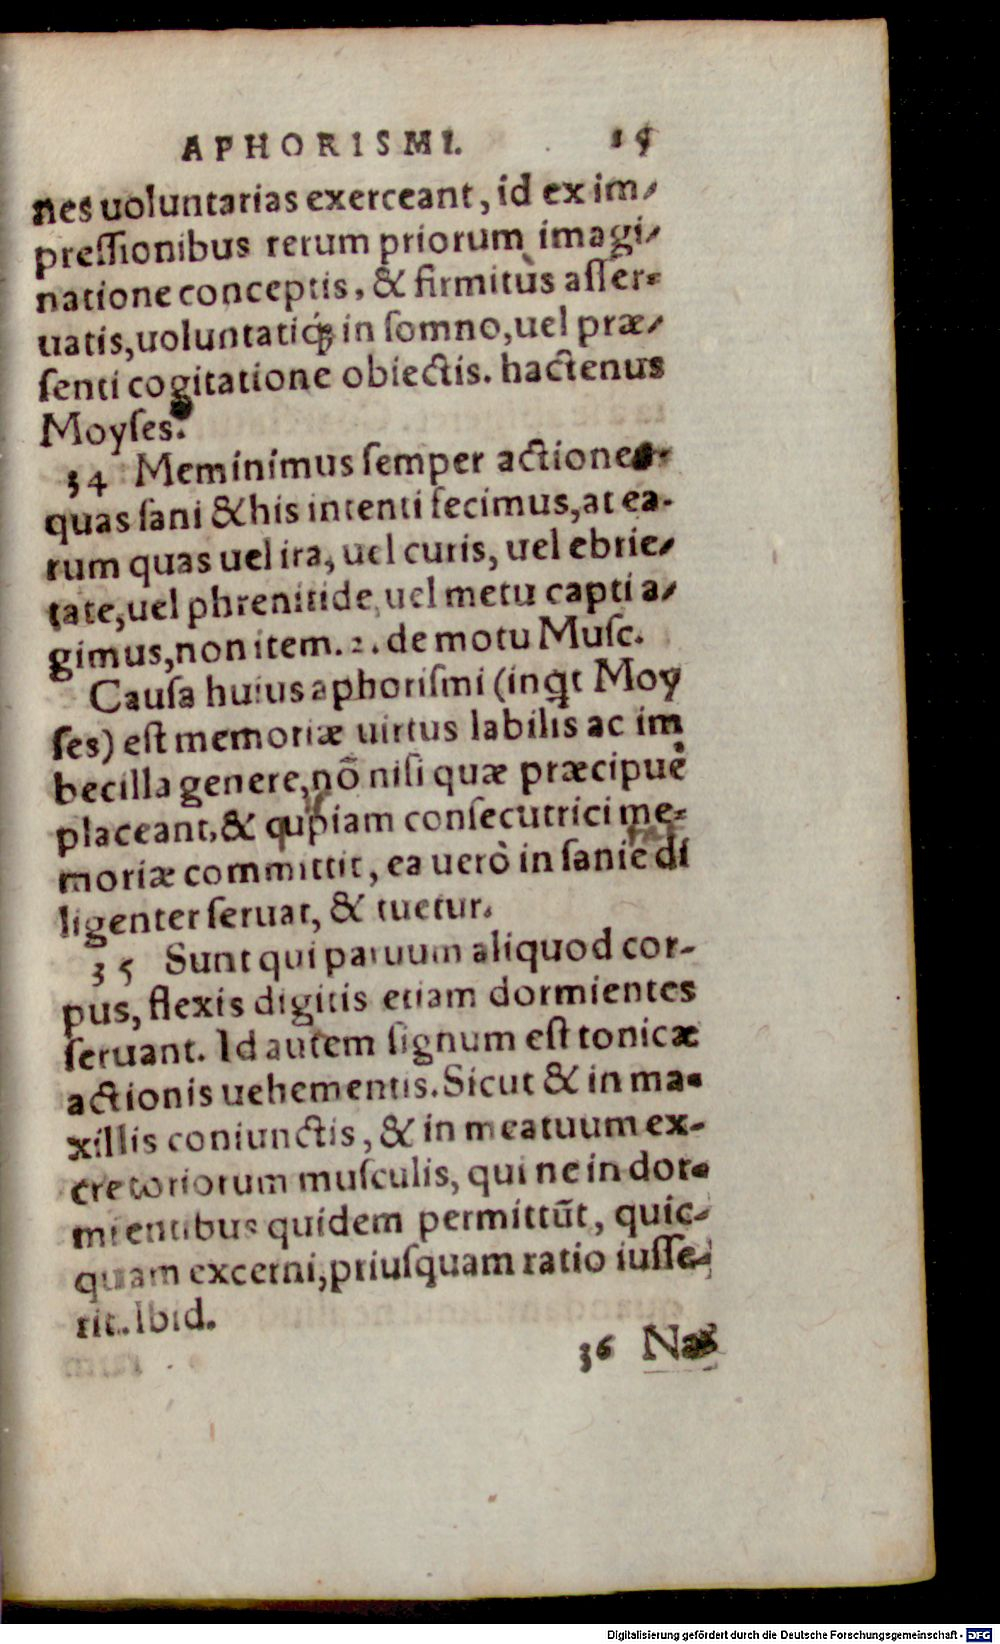 APHORISMI. 15
nes uoluntarias exerceant, id ex im-
pressionibus rerum priorum imagi-
natione conceptis, & firmitùs asser-
uatis, uoluntatiq́; in somno, uel præ-
senti cogitatione obiectis. hactenus
Moyses.
34 Meminimus semper actiones
quas sani & his intenti fecimus, at ea-
rum quas uel ira, uel curis, uel ebrie-
tate, uel phrenitide, uel metu capti a-
gimus, non item. 2. de motu Musc.
Causa huius aphorismi (inqt Moy
ses) est memoriæ uirtus labilis ac im
becilla genere, nõ nisi quæ præcipuè
placeant, & qupiam consecutrici me-
moriæ committit, ea uerò in sanie di
ligenter seruat, & tuetur.
35 Sunt qui paruum aliquod cor-
pus, flexis digitis etiam dormientes
seruant. Id autem signum est tonicæ
actionis uehementis. Sicut & in ma-
xillis coniunctis, & in meatuum ex-
cretoriorum musculis, qui ne in dor-
mientibus quidem permittũt, quic-
quam excerni, priusquam ratio iusse-
rit. Ibid.
36
Digitalisierung gefördert durch die Deutsche Forschungsgemeinschaft - DFG